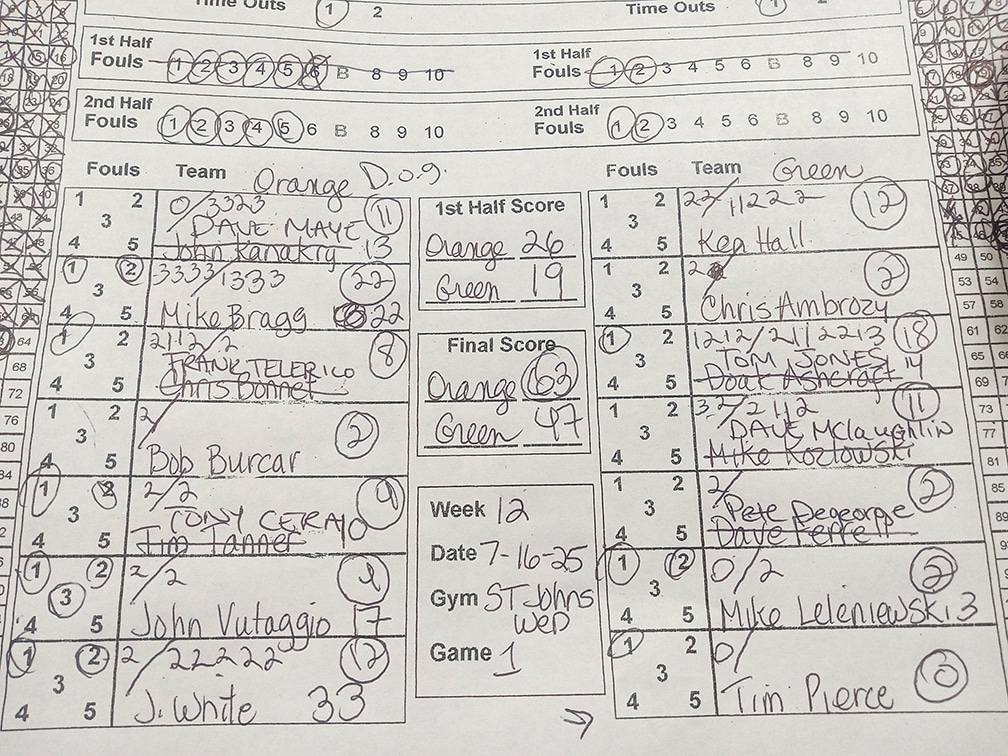 Time Outs 1 2
Time Outs 1 2
1st Half
Fouls 1 2 3 4 5 6 B 8 9 10
1st Half
Fouls 1 2 3 4 5 6 B 8 9 10
2nd Half
Fouls 1 2 3 4 5 6 B 8 9 10
2nd Half
Fouls 1 2 3 4 5 6 B 8 9 10
Fouls Team Orange D.O.G.
1 2 3 4 5
0/3323 11
DAVE MAYE
John Kanakry 13
1 2 3 4 5
3333/1333 22
Mike Bragg 22
1 2 3 4 5
2112/2 8
FRANK TELERICO
Chris Bonnet
1 2 3 4 5
2/ 2
Bob Burcar
1 2 3 4 5
2/2 4
TONY CERAJO
Jim Tanner
1 2 3 4 5
2/2 4
John Vutaggio 7
1 2 3 4 5
2/22222 12
J. White 33
1st Half Score
Orange 26
Green 19
Final Score
Orange 63
Green 47
Week 12
Date 7-16-25
Gym ST Johns
WED
Game 1
Fouls Team Green
1 2 3 4 5
23/11222 12
Ken Hall
1 2 3 4 5
2 2
Chris Ambrozy
1 2 3 4 5
1212/2112213 18
TOM JONES
Doak Ashcraft 14
1 2 3 4 5
32/2112 11
DAVE McLaughlin
Mike Kozlowski
1 2 3 4 5
2/ 2
Pete Degeorge
Dave Ferrell
1 2 3 4 5
0/2 2
Mike Leleniewski 3
1 2 3 4 5
0/ 0
Tim Pierce
64
68
72
76
80
84
49 50
53 54
57 58
61 62
65 66
69
73
77
81
85
89